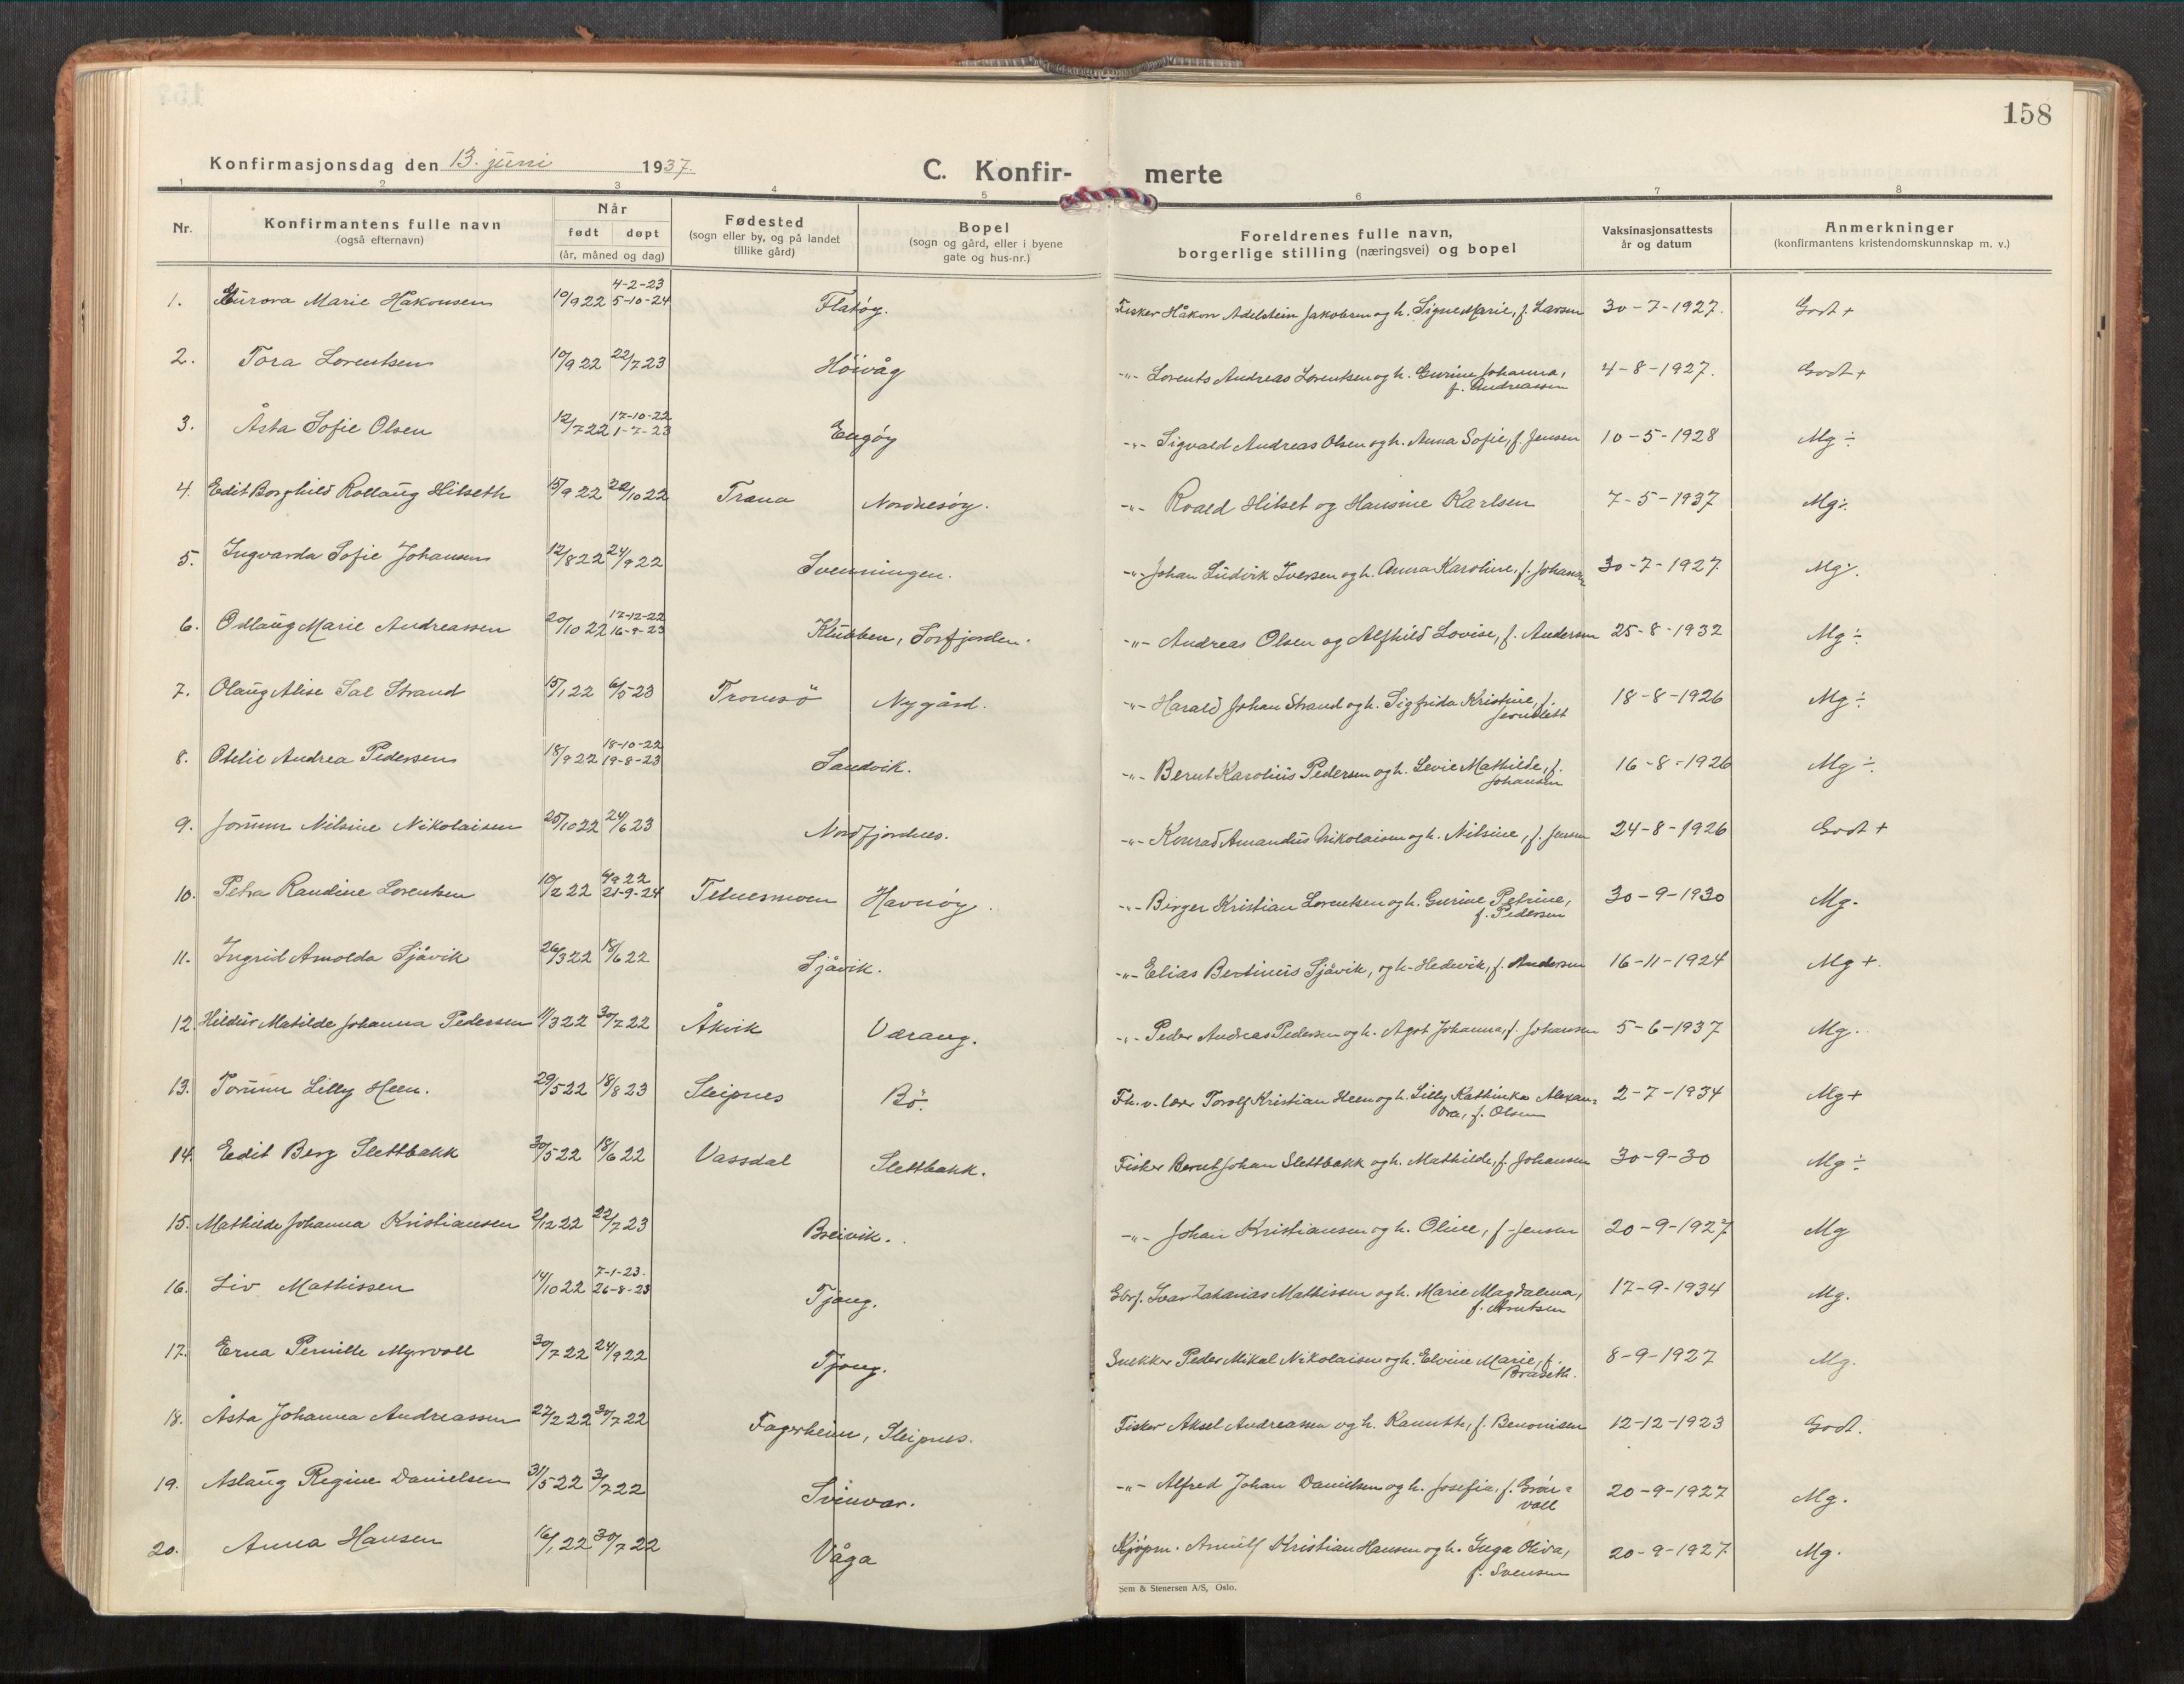 158
Konfirmasjonsdag den 13. juni 1937.
C. Konfir- merte
1 2 3 4 5 6 7 8
Nr.
Konfirmantens fulle navn
(også efternavn)
Når
født døpt
(år, måned og dag)
Fødested
(sogn eller by, og på landet
tillike gård)
Bopel
(sogn og gård, eller i byene
gate og hus-nr.)
Foreldrenes fulle navn,
borgerlige stilling (næringsvei) og bopel
Vaksinasjonsattests
år og datum
Anmerkninger
(konfirmantens kristendomskunnskap m. v.)
1. Aurora Marie Håkonsen 10/9 22 4-2-23 5-10-24 Flatøy. Fisker Håkon Adelstein Jakobsen og h. Signe Marie, f. Larsen 30-7-1927. Godt +
2. Tora Lorentsen 10/9 22 22/7 23 Höivåg -"- Lorents Andreas Lorentsen og h. Gurine Johanna, f. Andreassen 4-8-1927. Godt +
3. Åsta Sofie Olsen 12/7 22 17-10-22 1-7-23 Engøy -"- Sigvald Andreas Olsen og h. Anna Sofie, f. Jensen 10-5-1928 Mg ÷
4. Edit Borghild Rollaug Hilseth 15/9 22 22/10 22 Træna Nordnesøy. -"- Roald Hilset og Hansine Karlsen 7-5-1937 Mg ÷
5. Ingvarda Sofie Johansen 12/8 22 24/9 22 Svenningen. -"- Johan Ludvik Iversen og h. Anna Karoline, f. Johansen 30-7-1927 Mg.
6. Odlaug Marie Andreassen 20/10 22 17-12-22 16-9-23 Klubben, Sørfjorden. -"- Andreas Olsen og Alfhild Lovise, f. Andersen 25-8-1932 Mg ÷
7. Olaug Alise Sal Strand 15/1 22 6/5 23 Tromsö Nygård. -"- Harald Johan Strand og h. Sigfrida Kristine, f. 18-8-1926 Mg ÷
8. Otelie Andrea Pedersen 18/9 22 18-10-22 19-8-23 Sandvik. -"- Bernt Karolius Pedersen og h. Levie Mathilde, f. Johansen 16-8-1926 Mg ÷
9. Jorunn Nilsine Nikolaisen 25/10 22 24/6 23 Nordfjordnes. -"- Konrad Amandus Nikolaisen og h. Nilsine, f. Jensen 24-8-1926 Godt +
10. Petra Randine Lorentsen 10/2 22 4/9 22 21-9-24 Telnesmoen Havnöy. -"- Birger Kristian Lorentsen og h. Gurine Petrine, f. Pedersen 30-9-1930 Mg.
11. Ingrid Arnolda Sjåvik 26/3 22 18/6 22 Sjåvik. -"- Elias Bertinius Sjåvik, og h. Hedevik, f. Andersen 16-11-1924 Mg +.
12. Hildur Matilde Johanna Pedersen 11/3 22 30/7 22 Åkvik Værang. -"- Peder Andreas Pedersen og h. Agot Johanna, f. Johansen 5-6-1937 Mg.
13. Torunn Lilly Heen. 29/5 22 18/8 23 Sleipnes Bö. Fh. v. lærer Torolf Kristian Heen og h. Lilly Kathinka Alexan= dra, f. Olsen 2-7-1934 Mg +
14. Edit Berg Slettbakk 30/5 22 18/6 22 Vassdal Slettbakk. Fisker Bernt Johan Slettbakk og h. Mathilde, f. Johansen 30-9-30 Mg ÷
15. Mathilde Johanna Kristiansen 2/12 22 22/7 23 Breivik. -"- Johan Kristiansen og h. Oline, f. Jensen 20-9-1927 Mg
16. Liv Mathissen 14/10 22 7-1-23. 26-8-23 Tjong. Gbr. Ivar Zakarias Mathissen og h. Marie Magdalena, f. Arntsen 17-9-1934 Mg.
17. Erna Pernille Myrvoll 30/7 22 24/9 22 Tjong. Snekker Peder Mikal Nikolaisen og h. Elvine Marie, f. Braseth. 8-9-1927 Mg.
18. Åsta Johanna Andreassen 22/2 22 30/7 22 Fagerheim, Sleipnes. Fisker Aksel Andreassen og h. Kanutte, f. Benonisen 12-12-1923 Godt.
19. Aslaug Regine Danielsen 31/5 22 3/7 22 Svinvær. -"- Alfred Johan Danielsen og h. Josefia, f. Grön= voll 20-9-1927 Mg.
20. Anna Hansen 16/1 22 30/7 22 Våga Kjøpm. Arnulf Kristian Hansen og h. Inga Oliva, f. Svensen 20-9-1927 Mg.
Sem & Stenersen A/S, Oslo.